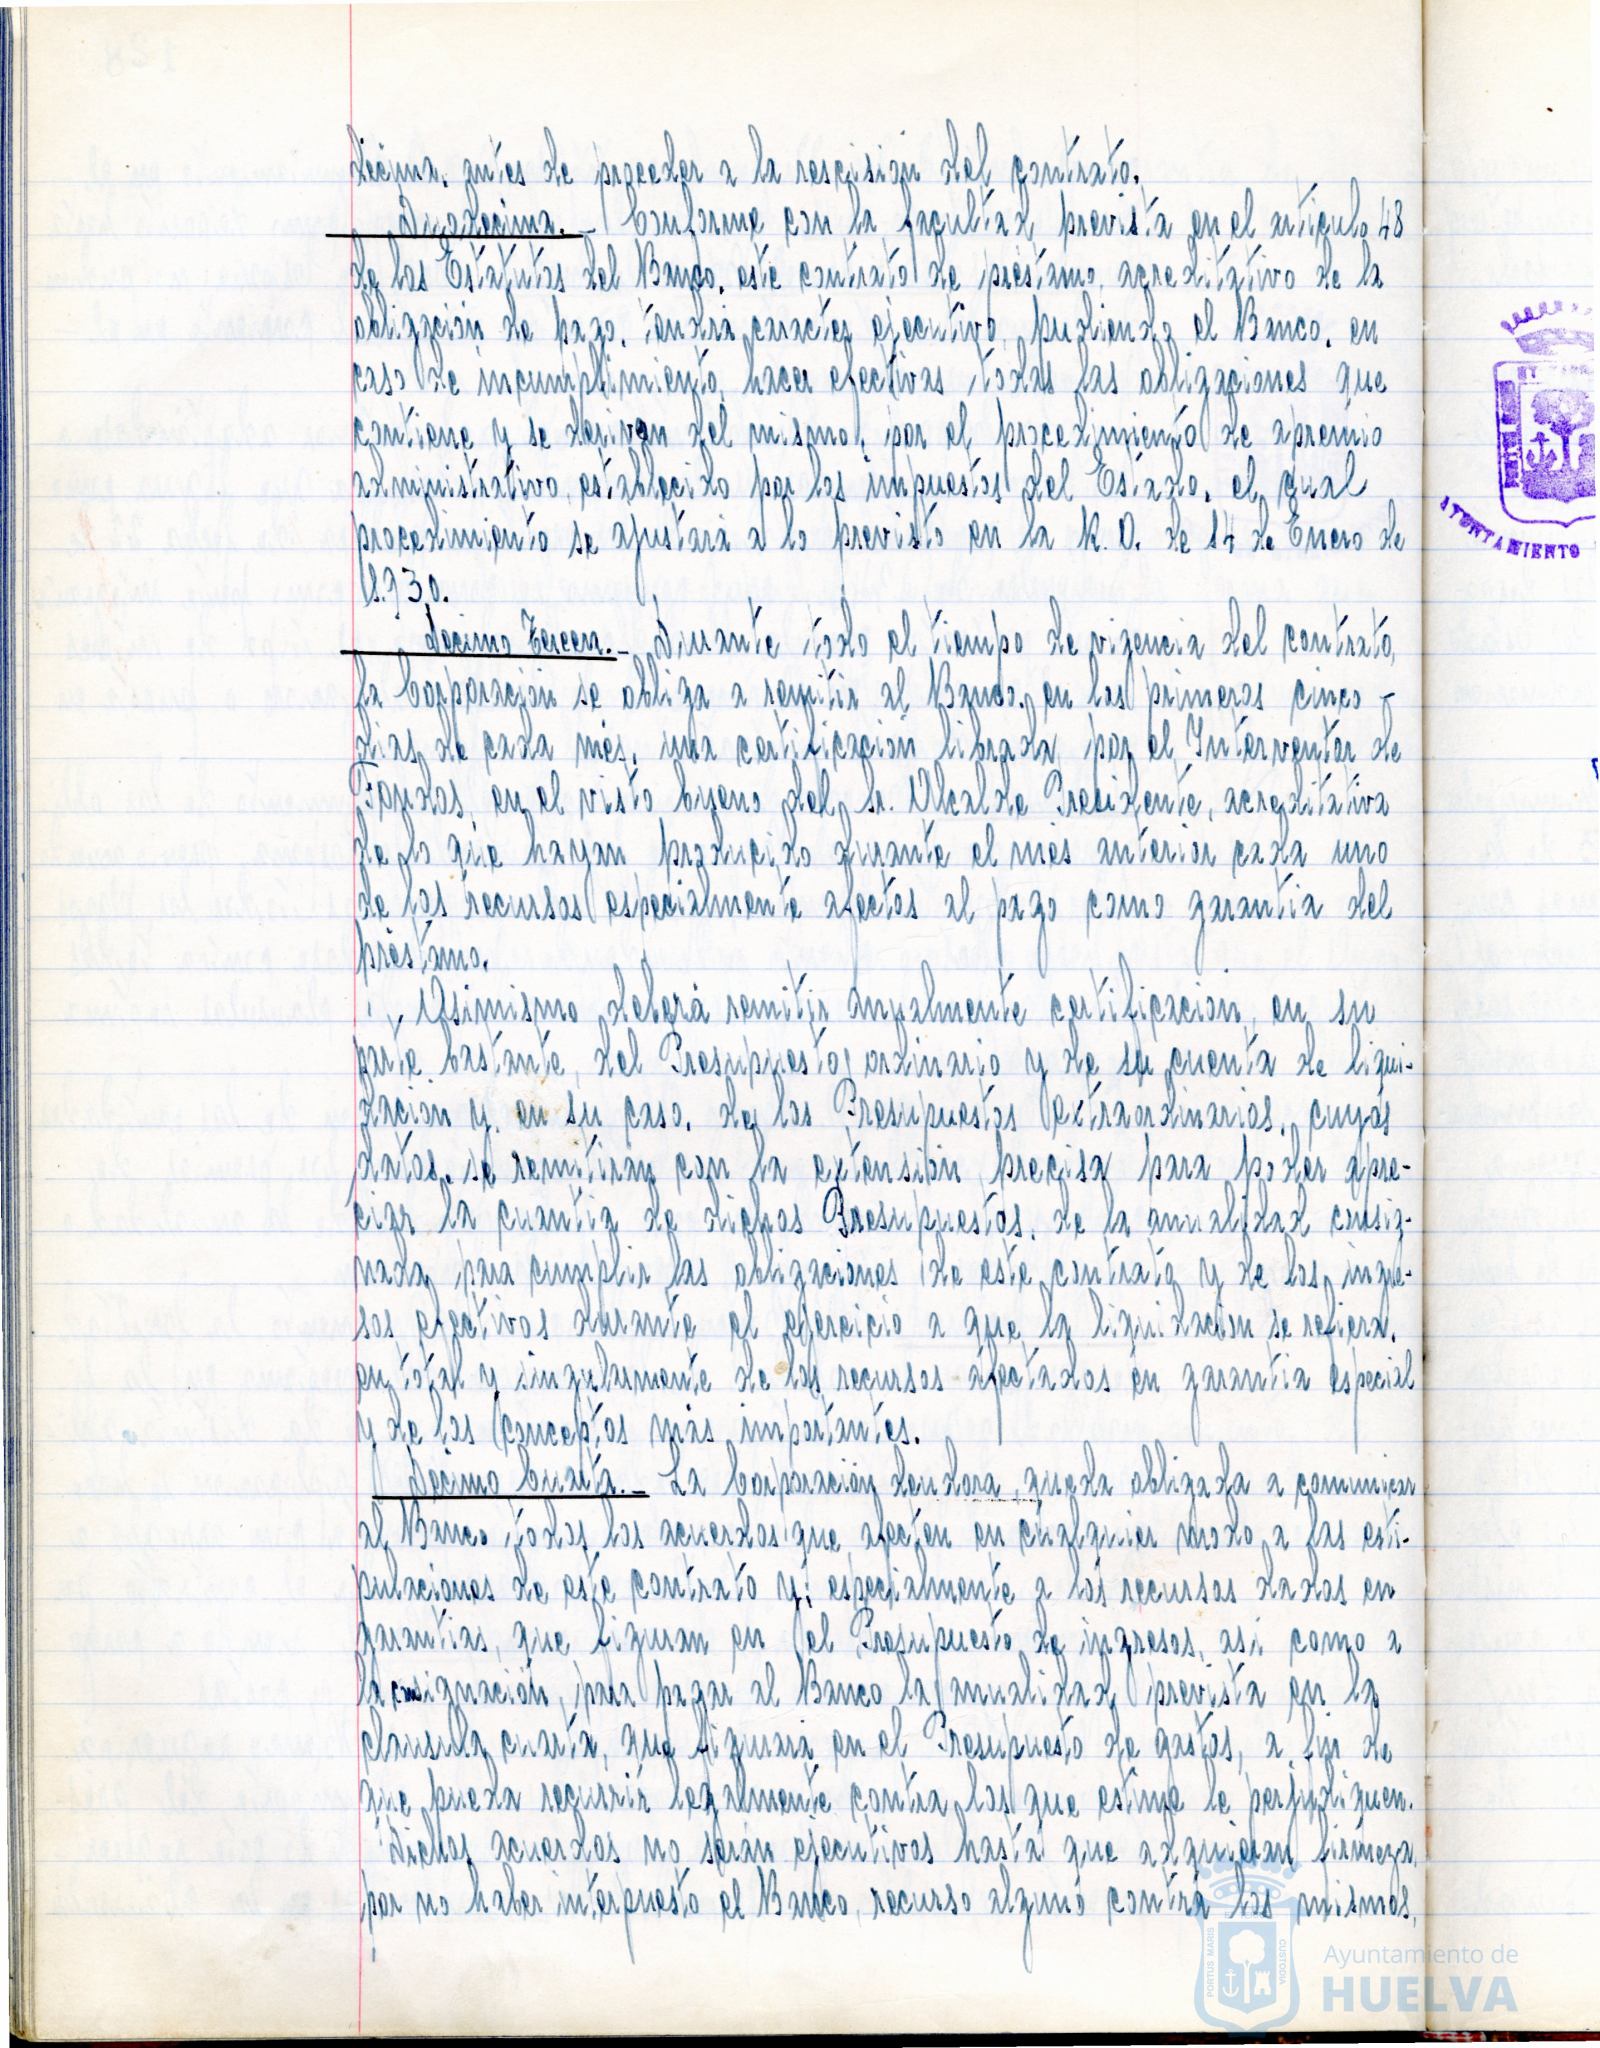 décima, antes de proceder a la rescisión del contrato.
Duodécima.- Conforme con la facultad prevista en el articulo 48
de los Estatutos del Banco, este contrato de préstamo, acreditativo de la
obligación de pago, tendrá caracter ejecutivo, pudiendo el Banco, en
caso de incumplimiento, hacer efectivas todas las obligaciones que
contiene y se derivan del mismo, por el procedimiento de apremio
administrativo, establecido por los impuestos del Estado, el cual
procedimiento se ajustará a lo previsto en la R. O. de 14 de Enero de
1.930.
Décimo Tercera.- Durante todo el tiempo de vigencia del contrato,
la Corporación se obliga a remitir al Banco, en los primeros cinco -
dias de cada més, una certificación librada por el Interventor de
Fondos, en el visto bueno del Sr. Alcalde Presidente, acreditativa
de lo que hayan producido durante el mes anterior cada uno
de los recursos especialmente afectos al pago como garantia del
préstamo.
Asimismo deberá remitir anualmente certificación, en su
parte bastante, del Presupuesto ordinario y de su cuenta de liqui-
dación y, en su caso, de los Presupuestos extraordinarios, cuyos
datos, se remitirán con la extensión precisa para poder apre-
ciar la cuantia de dichos Presupuestos, de la anualidad consig-
nada para cumplir las obligaciones de este contrato y de los ingre-
sos efectivos durante el ejercicio a que la liquidación se refiera,
en total y singularmente de los recursos afectados en garantia especial
y de los conceptos más importantes.
Décimo Cuarta.- La Corporación deudora, queda obligada a comunicar
al Banco todos los acuerdos que afecten en cualquier modo a las esti-
pulaciones de este contrato y, especialmente a los recursos dados en
garantias, que figuran en el Presupuesto de ingresos, asi como a
la consignación, para pagar al Banco la anualidad prevista en la
clausula cuarta, que figurará en el Presupuesto de gastos, a fin de
que pueda recurrir legalmente contra los que estime le perjudiquen.
Dichos acuerdos no serán ejecutivos hasta que adquieran firmeza,
por no haber interpuesto el Banco, recurso alguno contra los mismos,
AYUNTAMIENTO
PORTUS MARIS
CUSTODIA
Ayuntamiento de
HUELVA